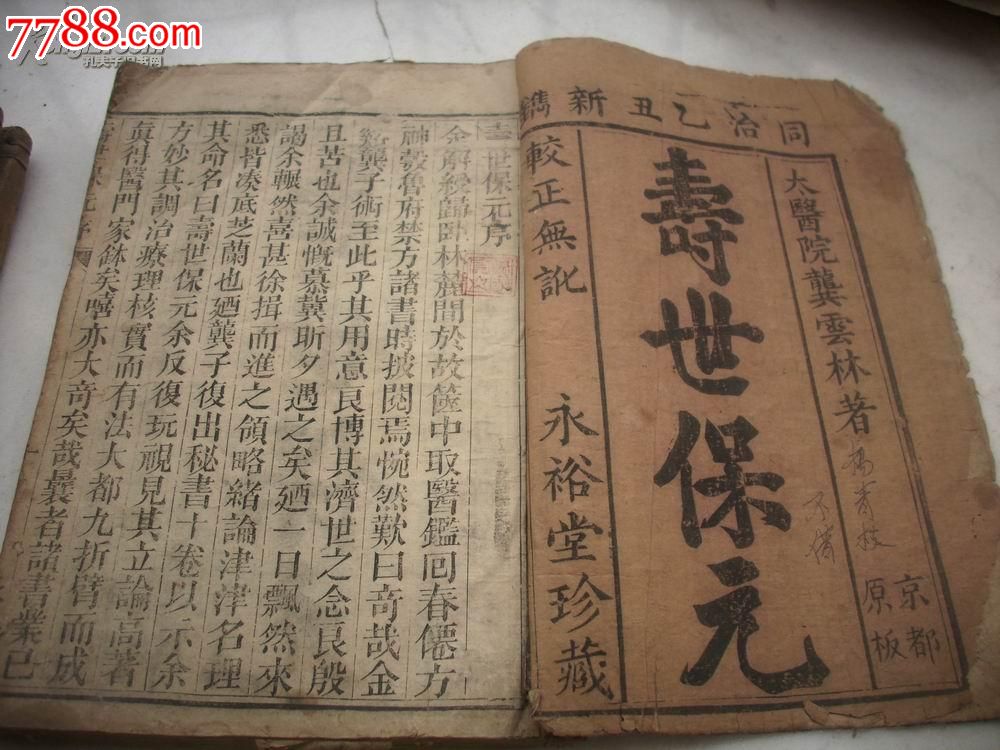 7788.com
孔夫子旧书网
同治乙丑新鐫
太醫院龔雲林著
京都
原板
壽世保元
較正無訛
永裕堂珍藏
楊青枝
不借
壽世保元序
余解綬歸臥林麓間於故篋中取醫鑑回春僊方
神彀魯府禁方諸書時披閱焉惋然歎曰奇哉金
谿龔子術至此乎其用意良博其濟世之念良殷
且苦也余誠慨慕冀昕夕遇之矣廼一日飄然來
謁余囅然喜甚徐揖而進之領略緒論津津名理
悉皆湊底芝蘭也廼龔子復出秘書十卷以示余
其命名曰壽世保元余反復玩視見其立論高著
方妙其調治療理核實而有法大都九折臂而成
真得醫門家鉢矣嘻亦大奇矣哉曩者諸書業已
壽世保元序